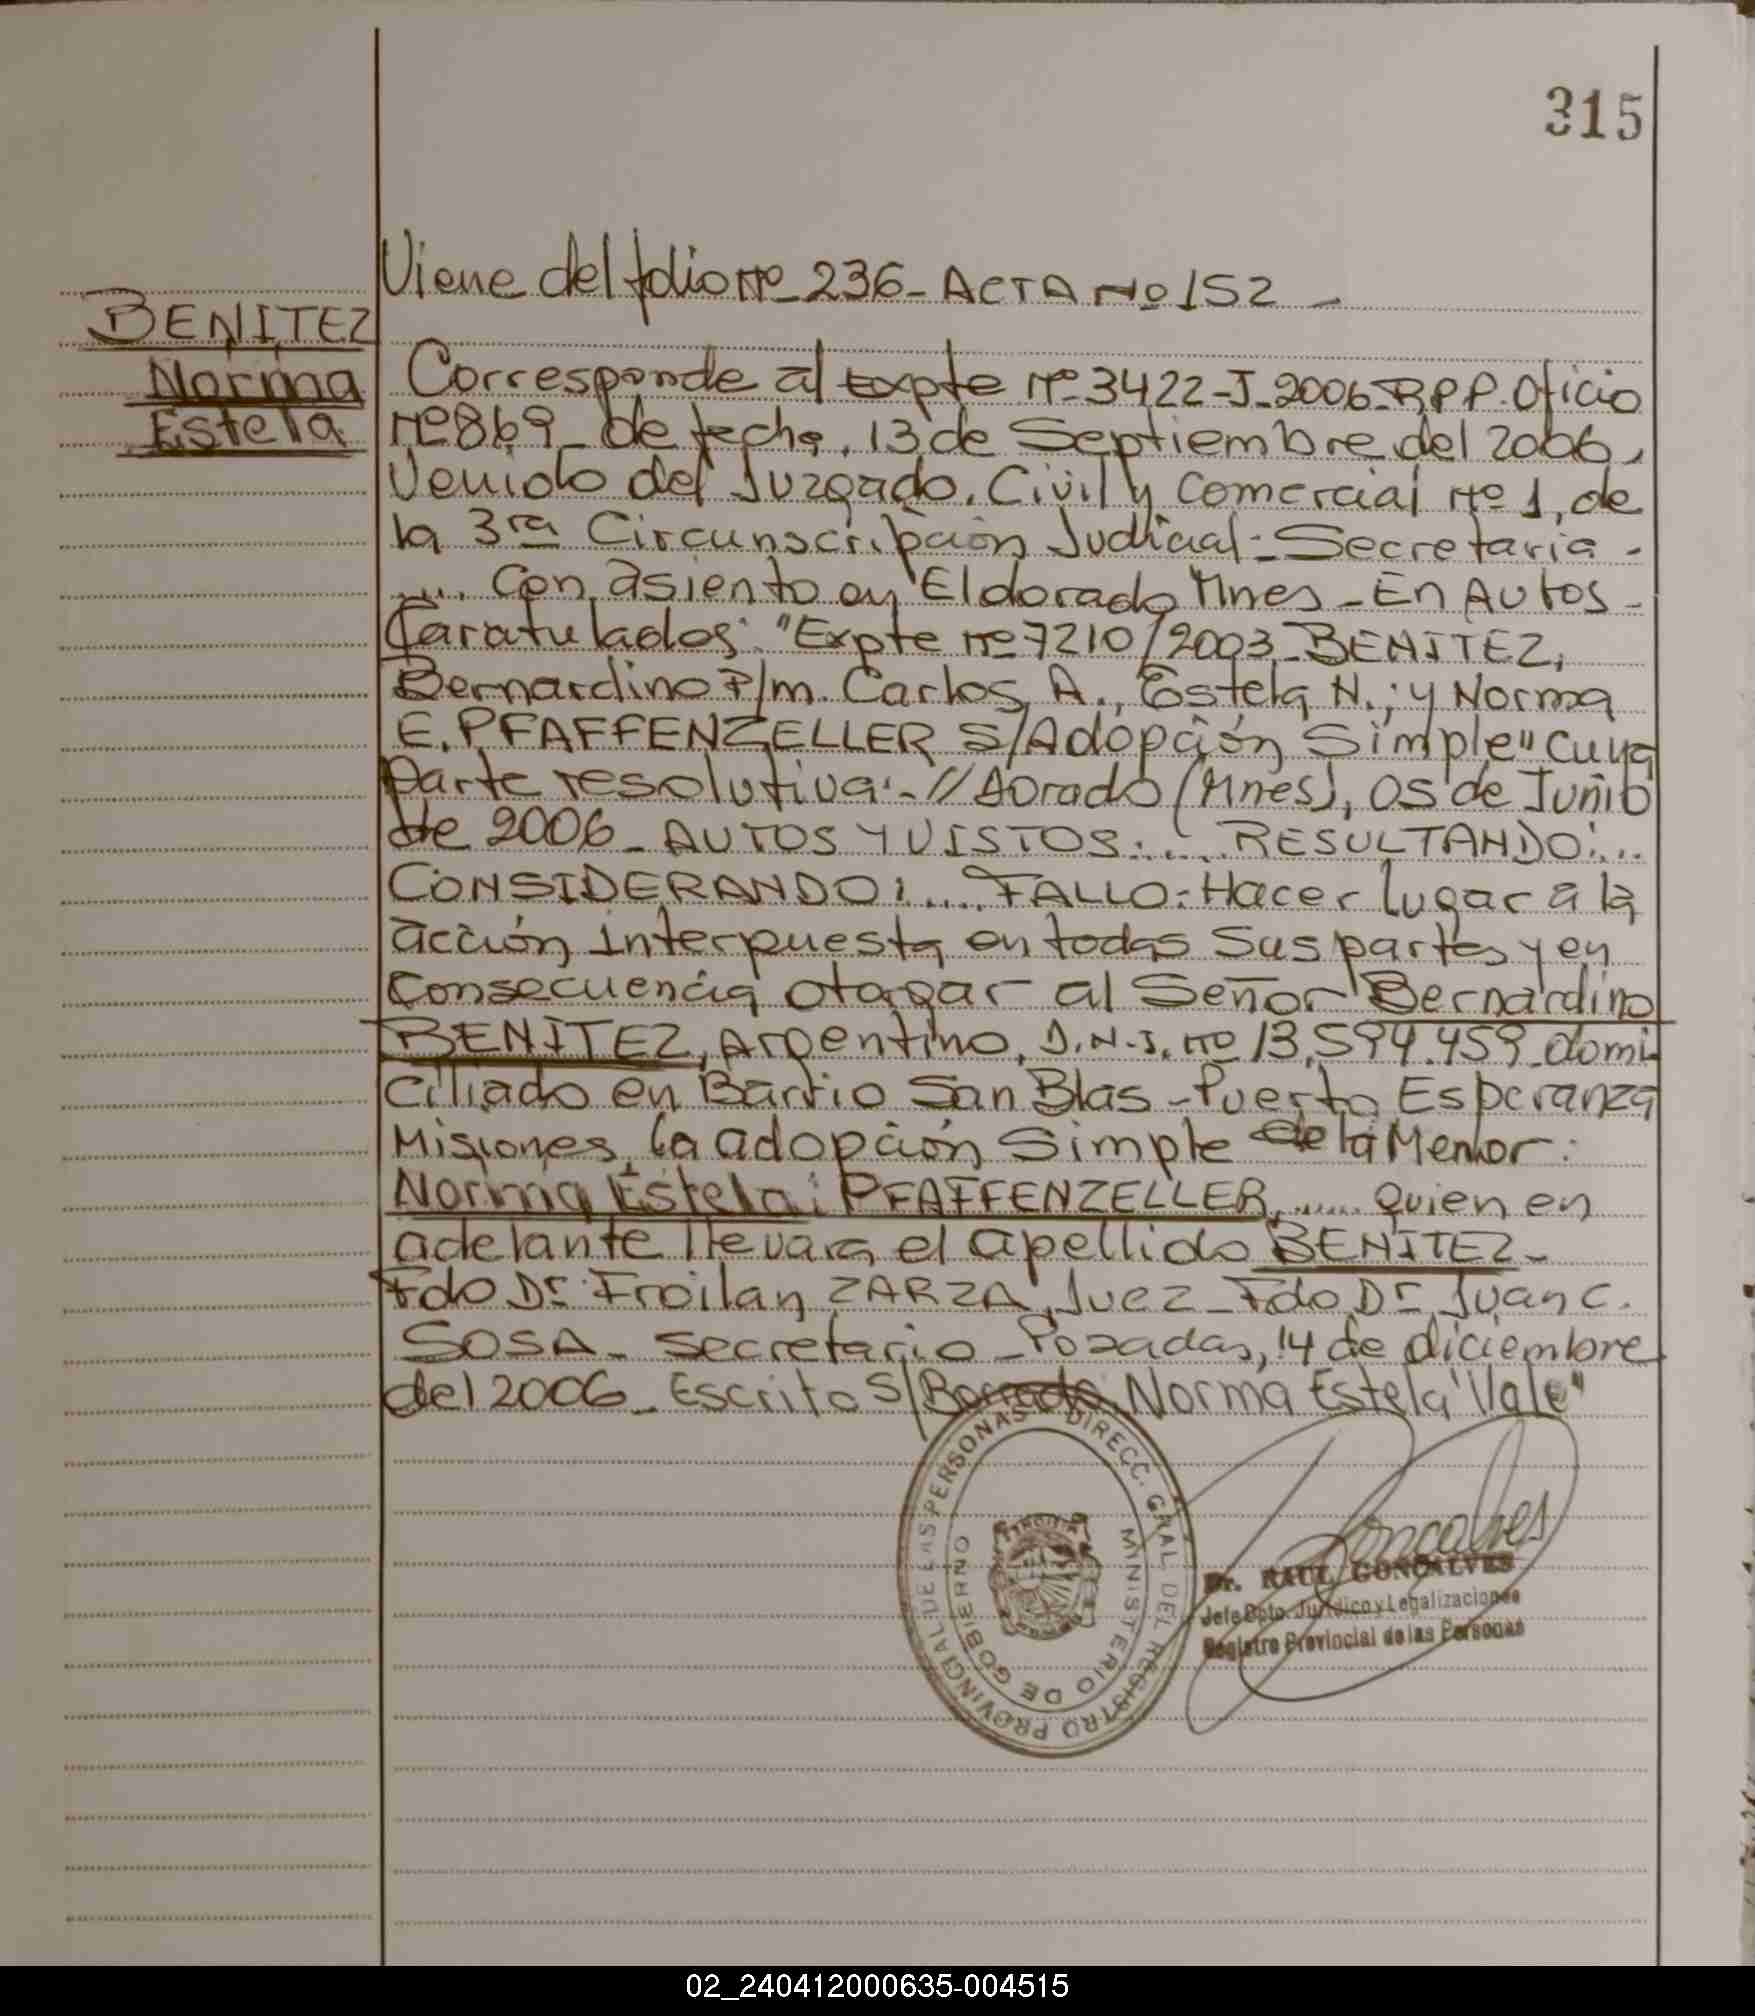 315
Viene del folio Nº 236 - ACTA Nº 152 -
BENITEZ
Norma
Estela
Corresponde al Expte Nº 3422-J-2006-R.P.P. Oficio
Nº 869 - de fecha, 13 de Septiembre del 2006,
Venido del Juzgado. Civil y Comercial Nº 1, de
la 3ra Circunscripción Judicial - Secretaria -
..... con asiento en Eldorado Mnes - En Autos -
Caratulados: "Expte Nº 7210/2003 - BENITEZ,
Bernardino P/m. Carlos A., Estela N.; y Norma
E. PFAFFENZELLER S/Adopción Simple" cuya
parte resolutiva: - //dorado (Mnes), 05 de Junio
de 2006 - AUTOS Y VISTOS:..... RESULTANDO:...
CONSIDERANDO:.... FALLO: Hacer lugar a la
acción interpuesta en todas sus partes y en
Consecuencia otorgar al Señor Bernardino
BENITEZ, Argentino, D.N.I. Nº 13.594.459 - domi-
ciliado en Barrio San Blas - Puerto Esperanza
Misiones, la adopción Simple de la Menor:
Norma Estela: PFAFFENZELLER, ..... quien en
adelante llevara el apellido BENITEZ -
Fdo Dr. Froilan ZARZA, Juez - Fdo Dr Juan C.
SOSA - Secretario - Posadas, 14 de diciembre
del 2006 - Escrito S/Borrado Norma Estela "Vale"
DIRECC. GRAL. DEL REGISTRO PROVINCIAL DE LAS PERSONAS
MINISTERIO DE GOBIERNO
Goncalves
Dr. RAUL GONCALVES
Jefe Dpto. Jurídico y Legalizaciones
Registro Provincial de las Personas
02_240412000635-004515